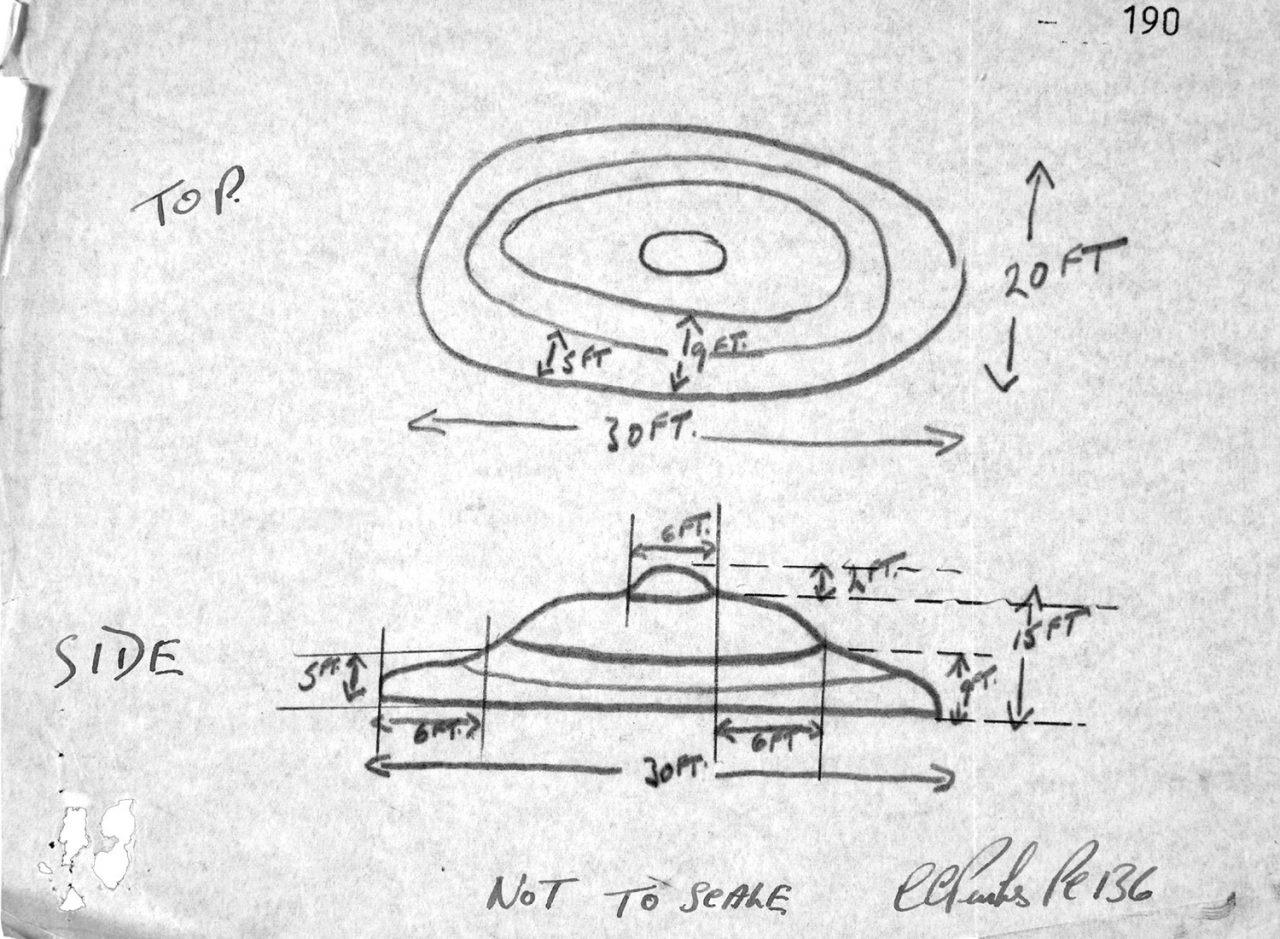 190
TOP.
20 FT
5 FT
9 FT.
30 FT.
6 FT.
2 FT.
15 FT
SIDE
5 FT.
9 FT.
6 FT.
6 FT
30 FT.
NOT TO SCALE
PC 136